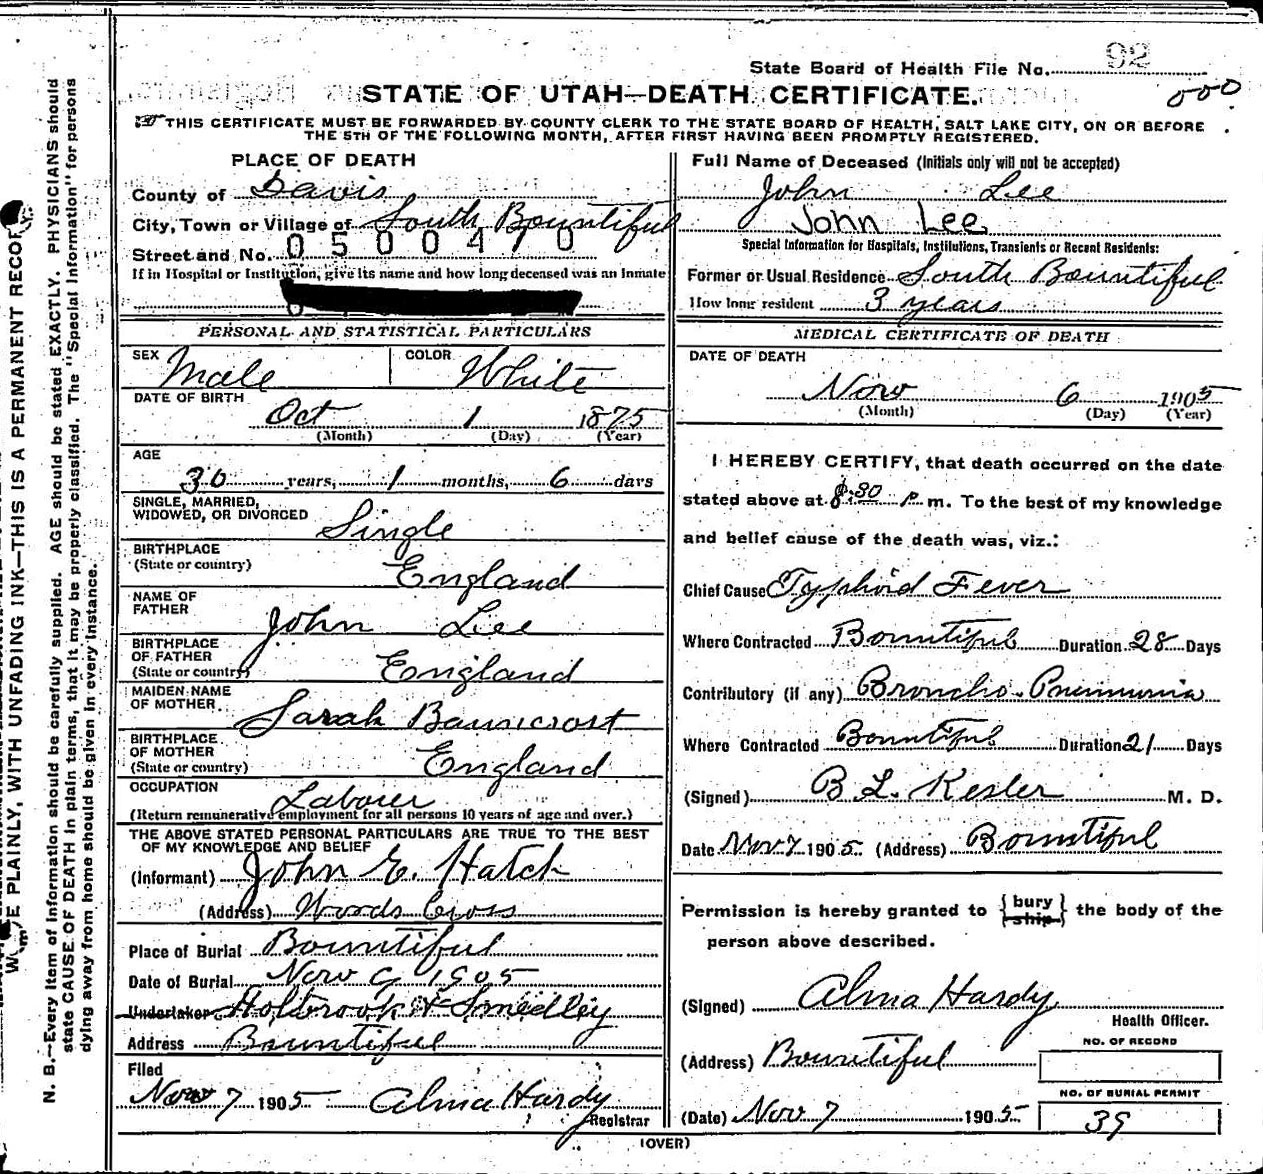 State Board of Health File No. 92
000
STATE OF UTAH—DEATH CERTIFICATE.
THIS CERTIFICATE MUST BE FORWARDED BY COUNTY CLERK TO THE STATE BOARD OF HEALTH, SALT LAKE CITY, ON OR BEFORE
THE 5TH OF THE FOLLOWING MONTH, AFTER FIRST HAVING BEEN PROMPTLY REGISTERED.
PLACE OF DEATH
County of Davis
City, Town or Village of South Bountiful
Street and No. 0500470
If in Hospital or Institution, give its name and how long deceased was an Inmate
PERSONAL AND STATISTICAL PARTICULARS
SEX Male COLOR White
DATE OF BIRTH
Oct 1 1875
(Month) (Day) (Year)
AGE
30 years, 1 months, 6 days
SINGLE, MARRIED,
WIDOWED, OR DIVORCED Single
BIRTHPLACE
(State or country) England
NAME OF
FATHER John Lee
BIRTHPLACE
OF FATHER
(State or country) England
MAIDEN NAME
OF MOTHER Sarah
BIRTHPLACE
OF MOTHER
(State or country) England
OCCUPATION Laborer
(Return remunerative employment for all persons 10 years of age and over.)
THE ABOVE STATED PERSONAL PARTICULARS ARE TRUE TO THE BEST
OF MY KNOWLEDGE AND BELIEF
(Informant) John E. Hatch
(Address) Woods Cross
Place of Burial Bountiful
Date of Burial Nov 9 1905
Undertaker Holbrook & Smedley
Address Bountiful
Filed
Nov 7 1905 Alma Hardy
Registrar
Full Name of Deceased (Initials only will not be accepted)
John Lee
John Lee
Special Information for Hospitals, Institutions, Transients or Recent Residents:
Former or Usual Residence South Bountiful
How long resident 3 years
MEDICAL CERTIFICATE OF DEATH
DATE OF DEATH
Nov 6 1905
(Month) (Day) (Year)
I HEREBY CERTIFY, that death occurred on the date
stated above at 8:30 p. m. To the best of my knowledge
and belief cause of the death was, viz.:
Chief Cause Typhoid Fever
Where Contracted Bountiful Duration 28 Days
Contributory (if any) Broncho-Pneumonia
Where Contracted Bountiful Duration 21 Days
(Signed) B L. Kesler M. D.
Date Nov 7 1905 (Address) Bountiful
Permission is hereby granted to {bury ship} the body of the
person above described.
(Signed) Alma Hardy
Health Officer.
(Address) Bountiful
NO. OF RECORD
NO. OF BURIAL PERMIT
(Date) Nov 7 1905 39
(OVER)
N. B.—Every item of information should be carefully supplied. AGE should be stated EXACTLY. PHYSICIANS should
state CAUSE OF DEATH in plain terms, that it may be properly classified. The "Special Information" for persons
dying away from home should be given in every instance.
PLAINLY, WITH UNFADING INK—THIS IS A PERMANENT RECORD